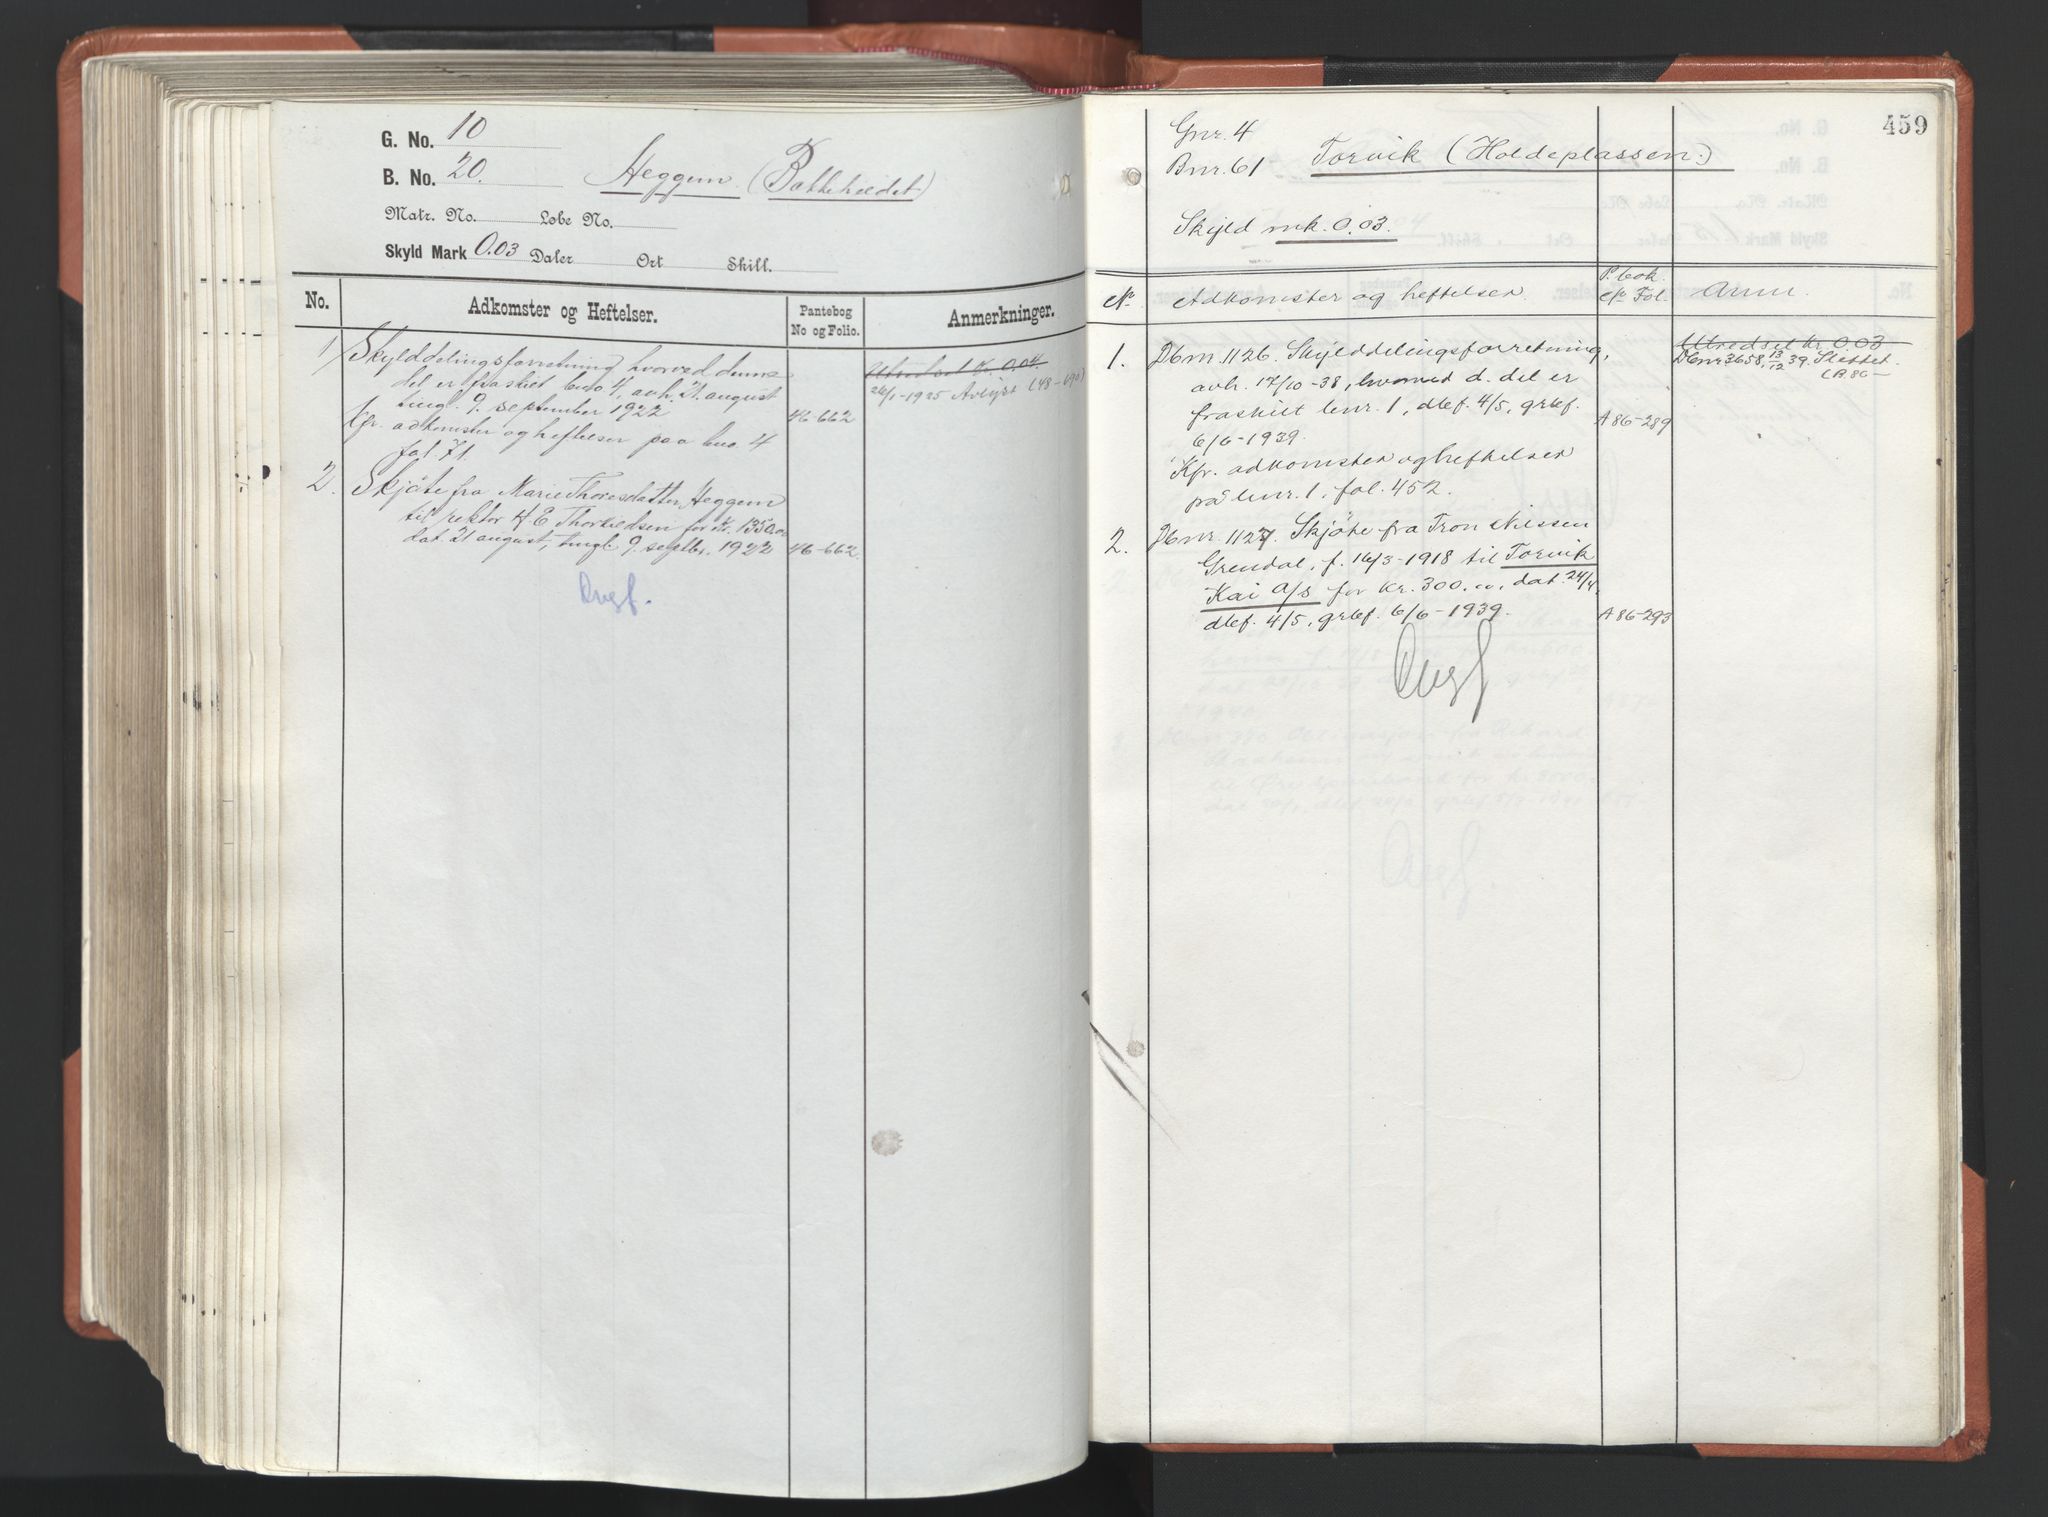 G. No. 10
B. No. 20. Heggem (Bakkehiedet)
Matr. No. Løbe No.
Skyld Mark 0.03 Daler Ort Skill.
No. Adkomster og Heftelser. Pantebog No og Folio. Anmerkninger.
1 Skylddelingsforretning hvorved denne
del er fraskilt bno 4, avh. 21. august
tingl. 9. september 1922 46-662
Cfr. adkomster og heftelser paa bno. 4
fol. 71.
Utvedset Kr. 0,04.
26/1-1925 Avlyst (48-190)
2. Skjøte fra Marie Thoresdatter Heggem
til rektor H E Thorkildsen for kr. 1350.00
dat. 21 august, tingl. 9. septbr. 1922 46-662
Avgf.
459
Gnr. 4
Bnr. 61 Torvik (Holdeplassen.)
Skyld mk. 0.03.
No. Adkomster og heftelser. P.bok. No Fol. Anm.
1. Dbnr. 1126. Skylddelingsforretning,
avh. 17/10-38, hvorved d. del er
fraskilt bnr. 1, dbf. 4/5, grbf.
6/6-1939. A 86-289
Kfr. adkomster og heftelser
på bnr. 1, fol. 452.
Utvedset kr 0.03
Dbnr 3658, 13/12 39. Slettet.
(B.86-
2. Dbnr. 1127. Skjøte fra Tron Nilssen
Grendal, f. 16/3-1918 til Torvik
Kai A/s for kr. 300.00, dat. 24/4,
dbf. 4/5, grbf. 6/6-1939. A 86-293
Avgf